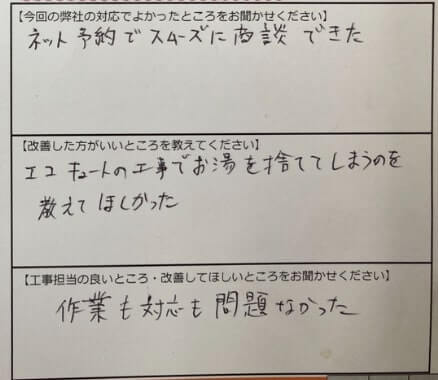 【今回の弊社の対応でよかったところをお聞かせください】
ネット予約でスムーズに商談できた
【改善した方がいいところを教えてください】
エコキュートの工事でお湯を捨ててしまうのを
教えてほしかった
【工事担当の良いところ・改善してほしいところをお聞かせください】
作業も対応も問題なかった